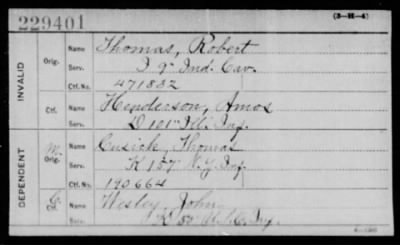 229401
(3-H-4)
INVALID
Orig.
Name Thomas, Robert
Serv. I 9" Ind. Cav.
Ctf. No. 471832
Ctf.
Name Henderson, Amos
Serv. D 101" Ill. Inf.
DEPENDENT
M.
Orig.
Name Cusick, Thomas
Serv. K 157 N.Y. Inf.
Ctf. No. 190664
C.
Ctf.
Name Wesley, John
Serv. K 50 U.S.C. Inf.